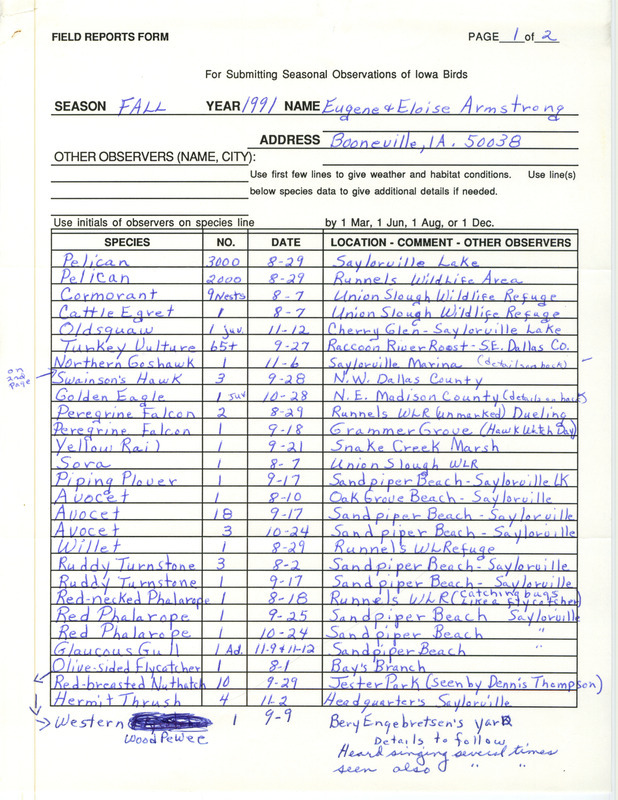 FIELD REPORTS FORM PAGE 1 of 2
For Submitting Seasonal Observations of Iowa Birds
SEASON FALL YEAR 1991 NAME Eugene & Eloise Armstrong
ADDRESS Booneville, IA. 50038
OTHER OBSERVERS (NAME, CITY):
Use first few lines to give weather and habitat conditions. Use line(s)
below species data to give additional details if needed.
Use initials of observers on species line by 1 Mar, 1 Jun, 1 Aug, or 1 Dec.
SPECIES NO. DATE LOCATION - COMMENT - OTHER OBSERVERS
Pelican 3000 8-29 Saylorville Lake
Pelican 2000 8-29 Runnels Wildlife Area
Cormorant 9 Nests 8-7 Union Slough Wildlife Refuge
Cattle Egret 1 8-7 Union Slough Wildlife Refuge
Oldsquaw 1 juv. 11-12 Cherry Glen - Saylorville Lake
Turkey Vulture 65+ 9-27 Raccoon River Roost - S.E. Dallas Co.
Northern Goshawk 1 11-6 Saylorville Marina (details on back)
on 2nd page
Swainson's Hawk 3 9-28 N.W. Dallas County
Golden Eagle 1 juv 10-28 N.E. Madison County (details on back)
Peregrine Falcon 2 8-29 Runnels WLR (unmarked) Dueling
Peregrine Falcon 1 9-18 Grammer Grove (Hawk Watch Day)
Yellow Rail 1 9-21 Snake Creek Marsh
Sora 1 8-7 Union Slough WLR
Piping Plover 1 9-17 Sandpiper Beach - Saylorville LK
Avocet 1 8-10 Oak Grove Beach - Saylorville
Avocet 18 9-17 Sandpiper Beach - Saylorville
Avocet 3 10-24 Sandpiper Beach - Saylorville
Willet 1 8-29 Runnels WLRefuge
Ruddy Turnstone 3 8-2 Sandpiper Beach - Saylorville
Ruddy Turnstone 1 9-17 Sandpiper Beach - Saylorville
Red-necked Phalarope 1 8-18 Runnels WLR (catching bugs like a flycatcher)
Red Phalarope 1 9-25 Sandpiper Beach Saylorville
Red Phalarope 1 10-24 Sandpiper Beach "
Glaucous Gull 1 Ad. 11-9 & 11-12 Sandpiper Beach "
Olive-sided Flycatcher 1 8-1 Bay's Branch
Red-breasted Nuthatch 10 9-29 Jester Park (seen by Dennis Thompson)
Hermit Thrush 4 11-2 Headquarter's Saylorville
Western Wood Pewee 1 9-9 Bery Engebretsen's yard
Details to follow
Heard singing several times
seen also " "